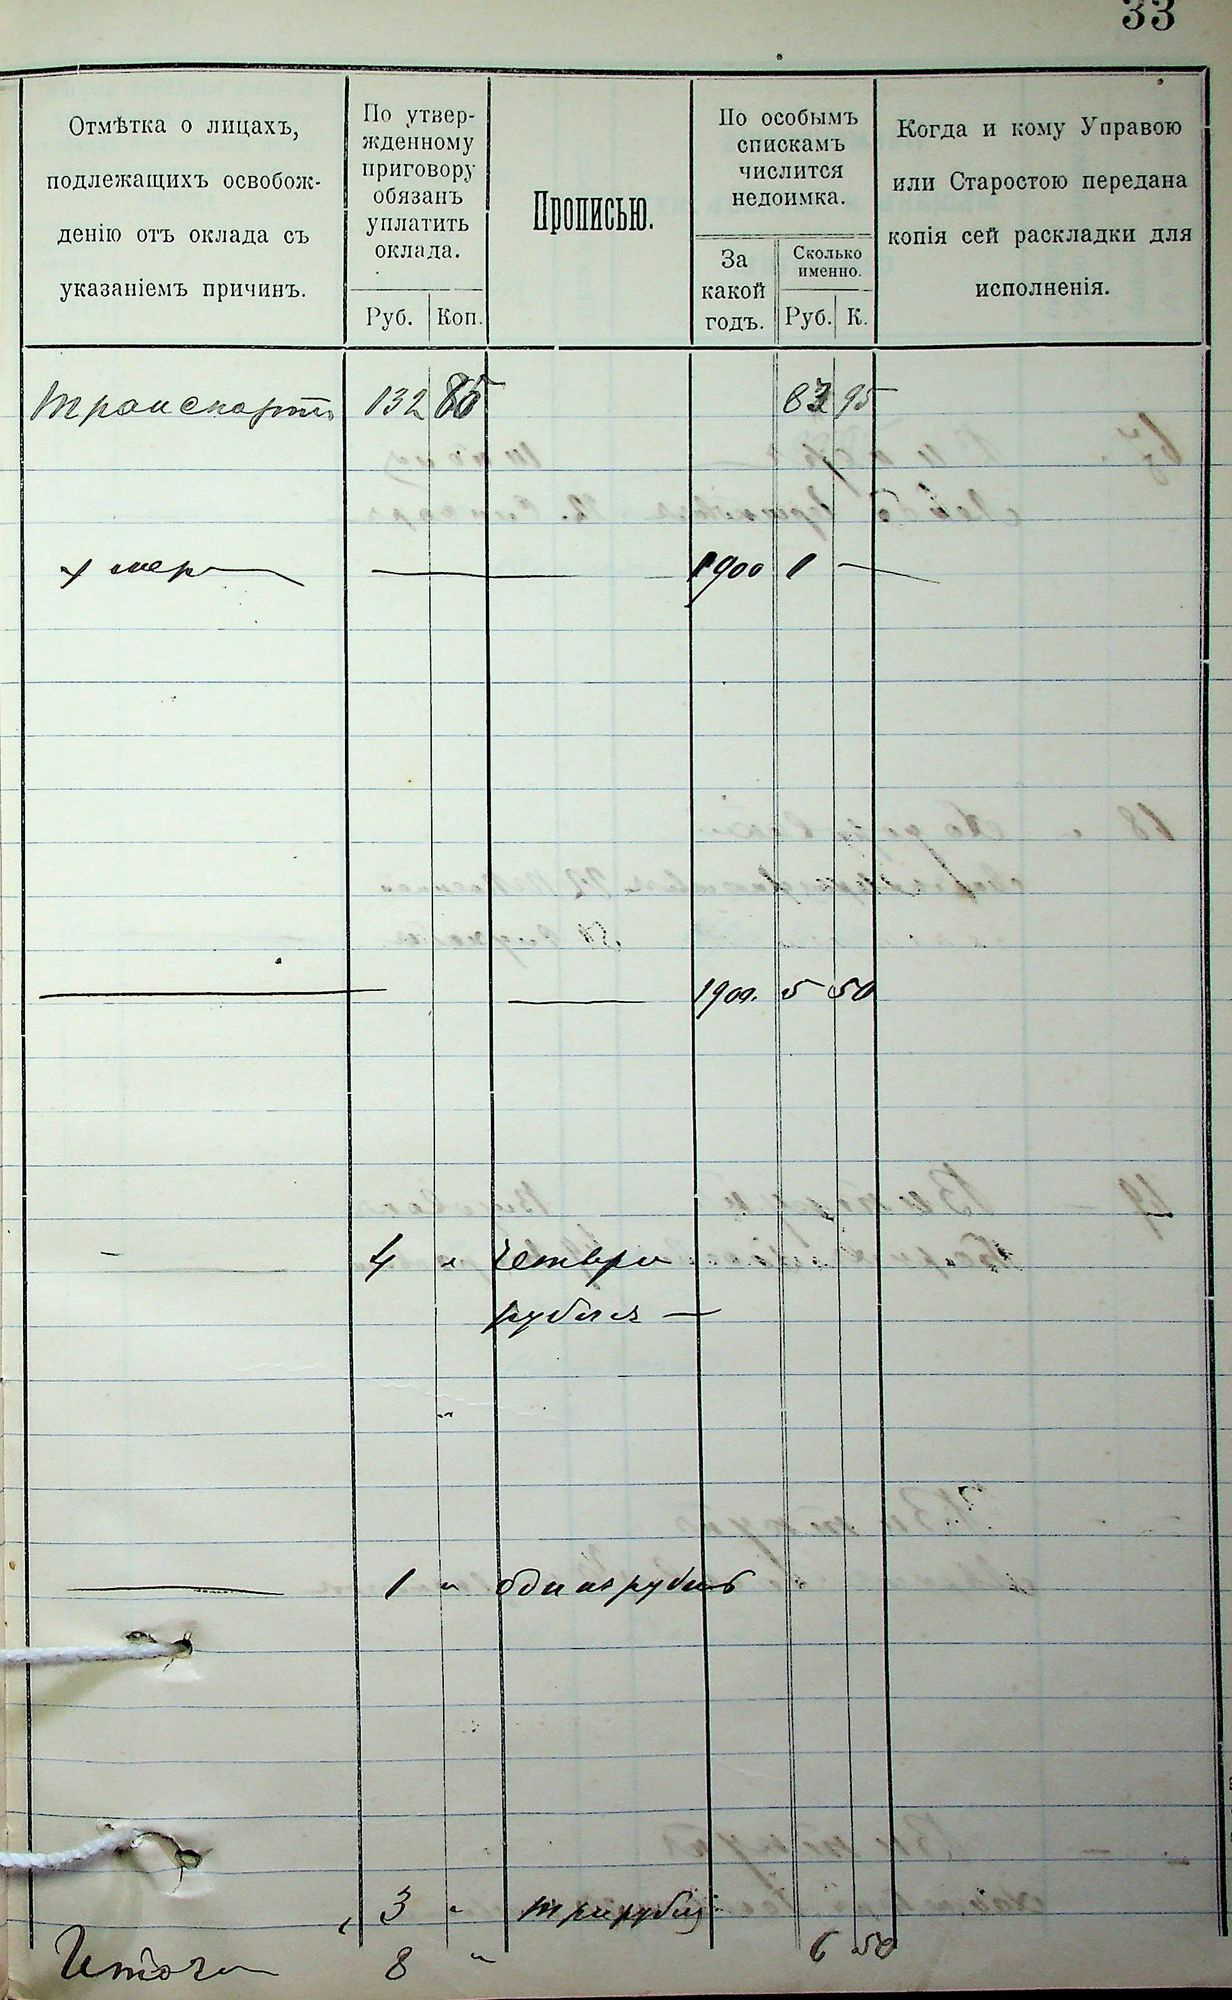 33
Отмѣтка о лицахъ,
подлежащихъ освобож-
денію отъ оклада съ
указаніемъ причинъ.
По утвер-
жденному
приговору
обязанъ
уплатить
оклада.
Руб. Коп.
Прописью.
По особымъ
спискамъ
числится
недоимка.
За
какой
годъ.
Сколько
именно.
Руб. К.
Когда и кому Управою
или Старостою передана
копія сей раскладки для
исполненія.
Транспортъ 132 85 83 95
умер — 1900 1 —
— — 1900. 5 50
— 4 " четыре
рубля —
"
— 1 " одинъ рубль
3 " три рубля
Итого 8 " 6 50